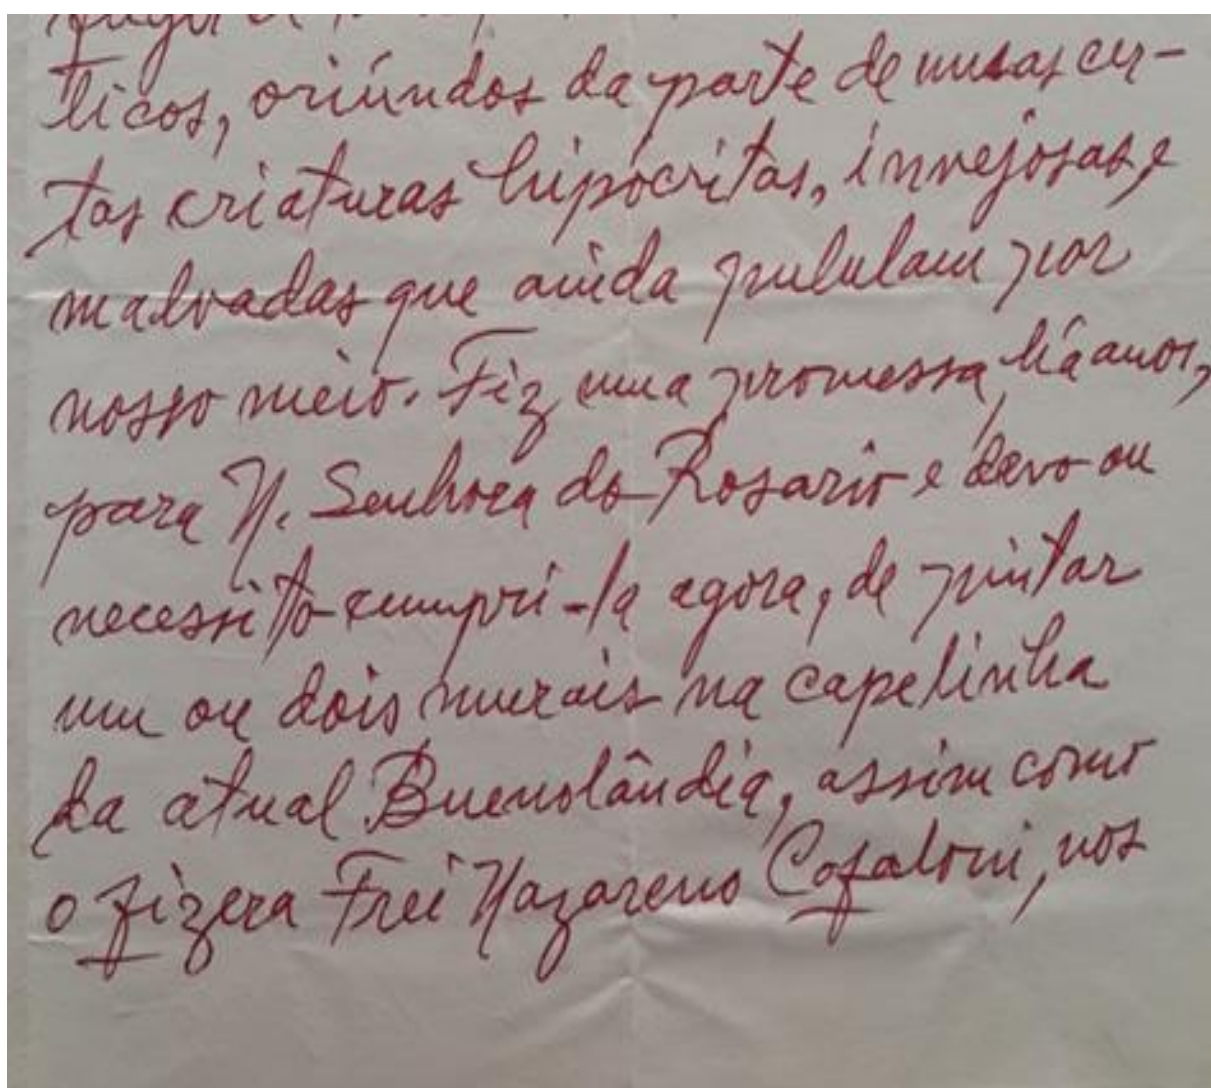 ticos, oriúndos da parte de umas cer-
tas criaturas hipócritas, invejosas e
malvadas que ainda pululam por
nosso meio. Fiz uma promessa, há anos,
para N. Senhora do Rosario e devo ou
necessito cumpri-la agora, de pintar
um ou dois murais na capelinha
da atual Buenolândia, assim como
o fizera Frei Nazareno Cofaloni, nos